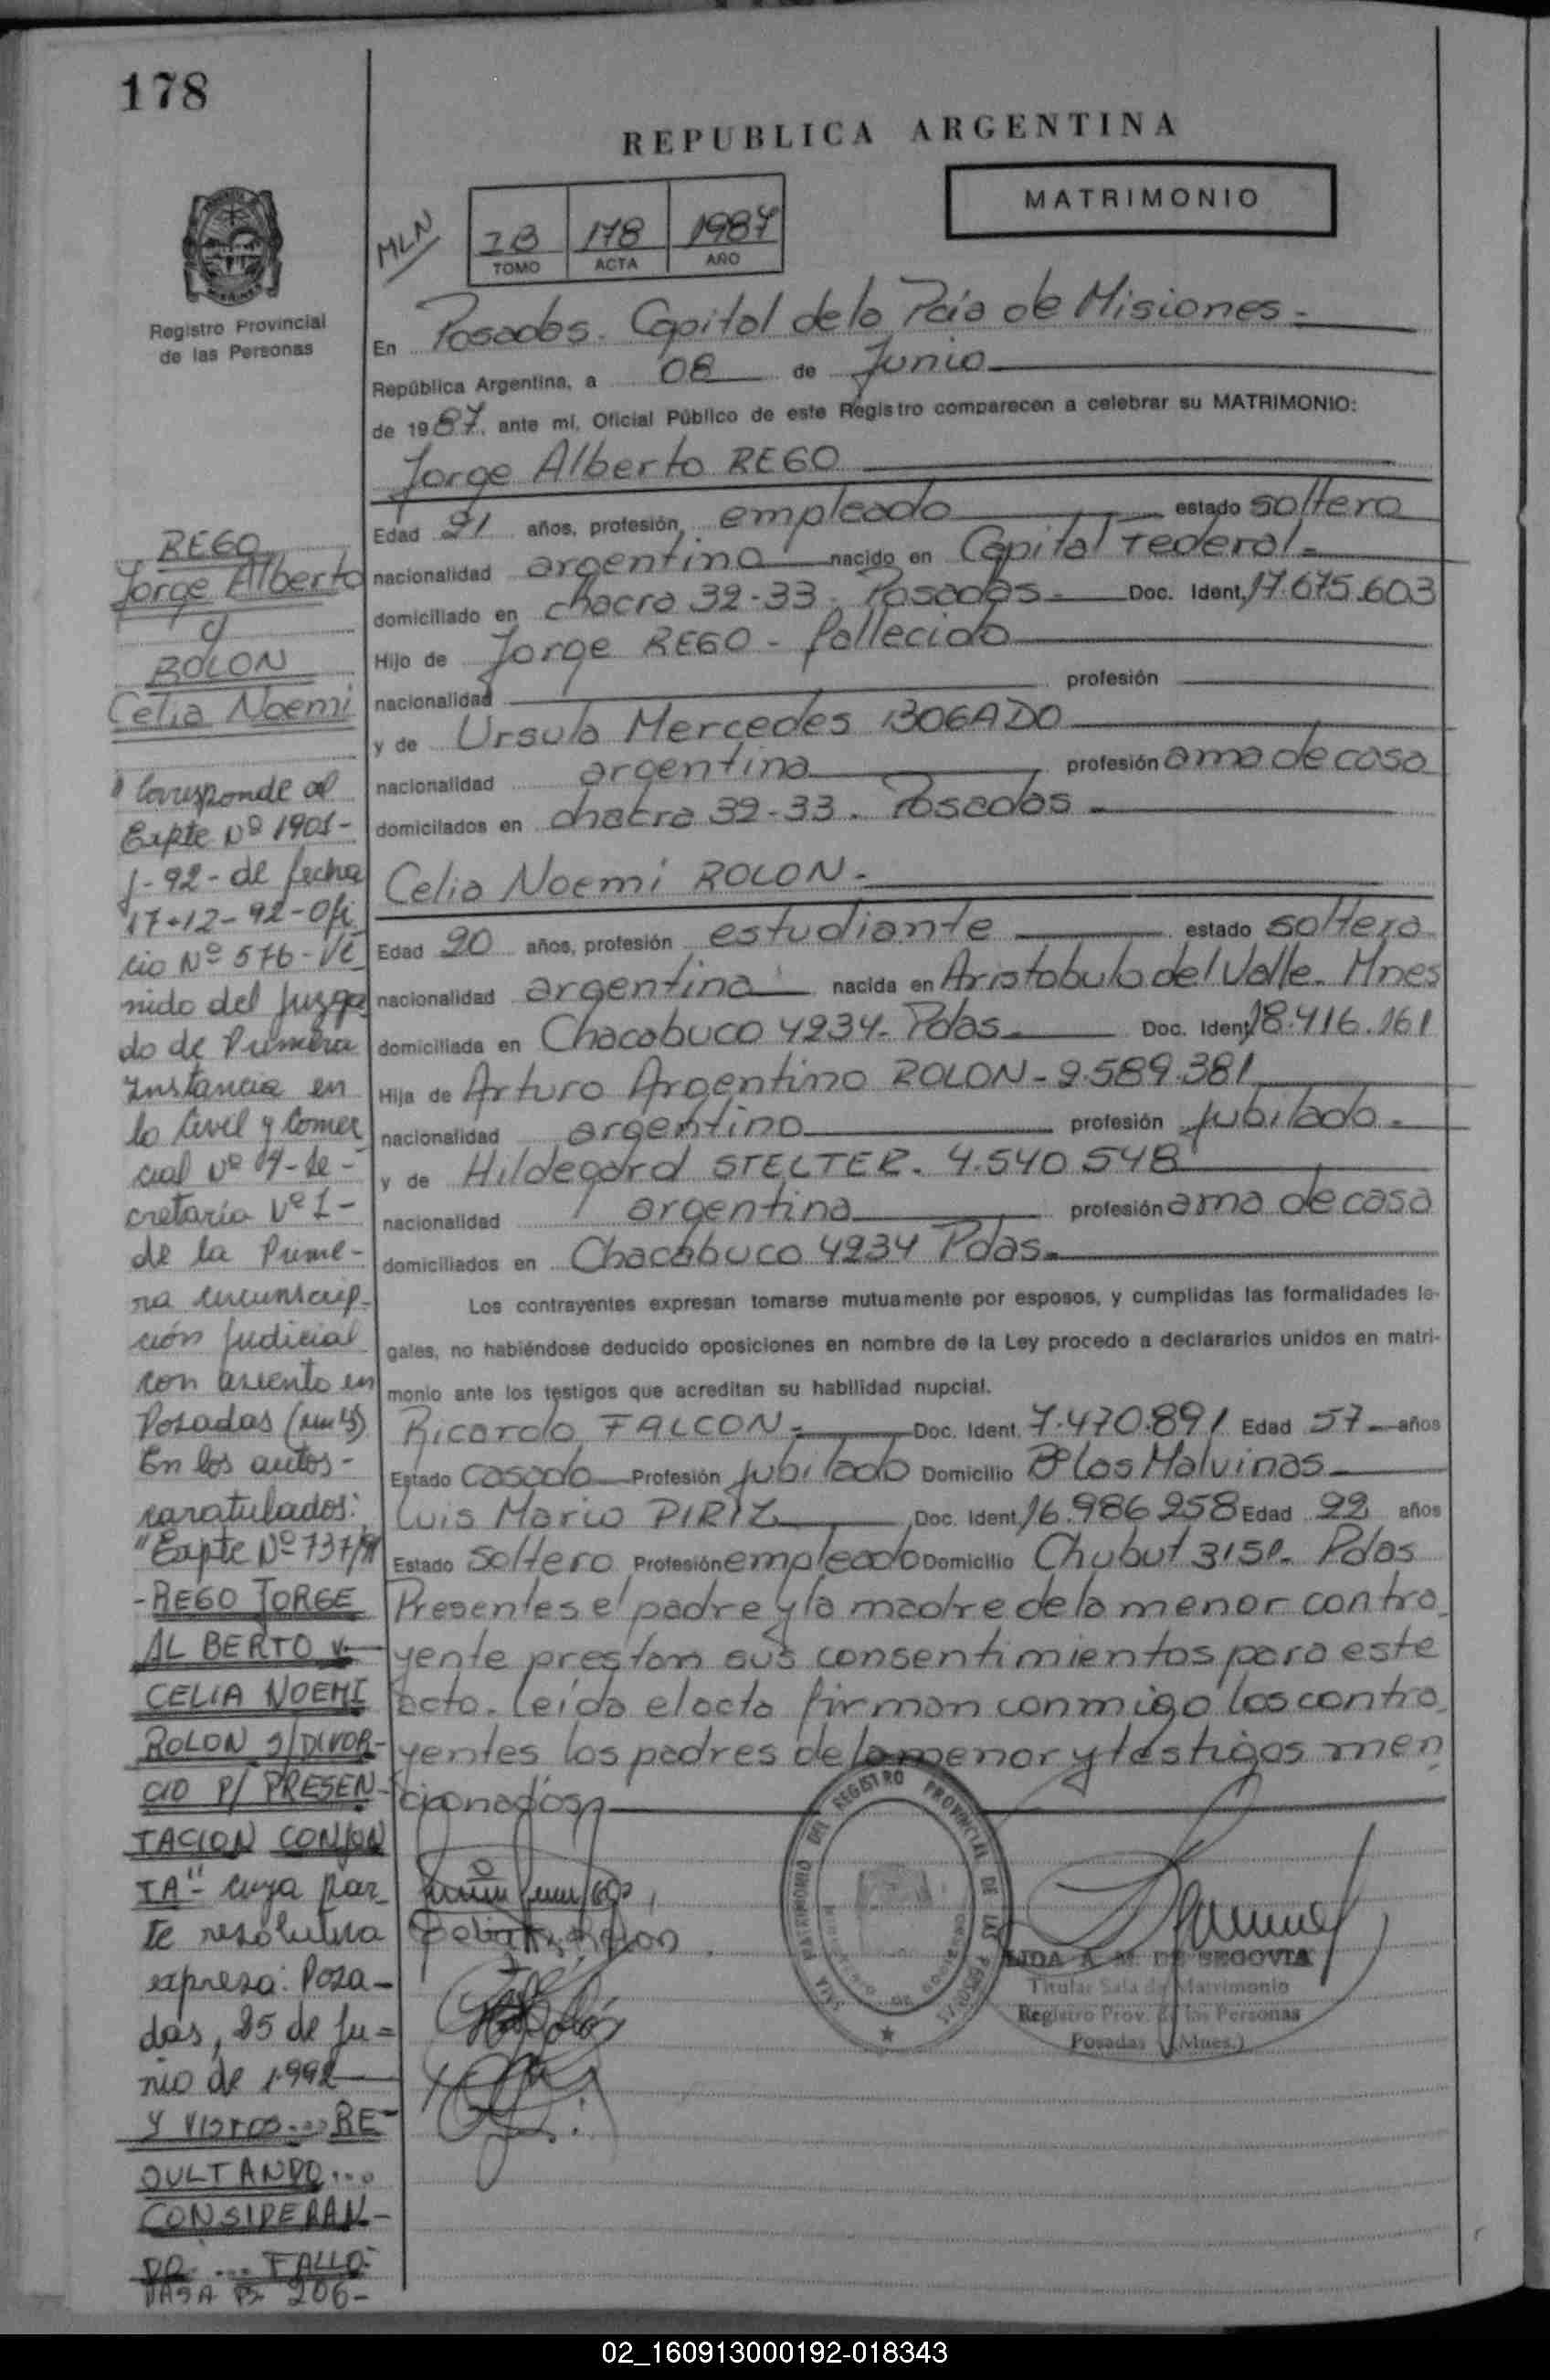 178
REPUBLICA ARGENTINA
MATRIMONIO
MLN
178 1987
TOMO ACTA AÑO
Registro Provincial
de las Personas
En Posadas. Capital de la Pcia de Misiones -
República Argentina, a 08 de Junio
de 1987, ante mí, Oficial Público de este Registro comparecen a celebrar su MATRIMONIO:
Jorge Alberto REGO
Edad 21 años, profesión, empleado estado soltero
nacionalidad argentina nacido en Capital Federal -
domiciliado en chacra 32-33. Posadas - Doc. Ident. 17.675.603
Hijo de Jorge REGO - fallecido
nacionalidad profesión
y de Ursula Mercedes BOGADO
nacionalidad argentina profesión ama de casa
domicilados en chacra 32-33. Posadas -
Celia Noemi ROLON -
Edad 20 años, profesión estudiante estado soltera
nacionalidad argentina nacida en Aristobulo del Valle. Mnes
domiciliada en Chacabuco 4234. Pdas - Doc. Ident. 18.416.161
Hija de Arturo Argentino ROLON - 2.589.381
nacionalidad argentino profesión jubilado -
y de Hildegard STELTER. 4.540.548
nacionalidad argentina profesión ama de casa
domiciliados en Chacabuco 4234 Pdas -
Los contrayentes expresan tomarse mutuamente por esposos, y cumplidas las formalidades le-
gales, no habiéndose deducido oposiciones en nombre de la Ley procedo a declararlos unidos en matri-
monio ante los testigos que acreditan su habilidad nupcial.
Ricardo FALCON - Doc. Ident. 7.470.891 Edad 57 años
Estado casado Profesión jubilado Domicilio Bº Las Malvinas
Luis Mario PIRIZ Doc. Ident. 16.986.258 Edad 22 años
Estado soltero Profesión empleado Domicilio Chubut 3151. Pdas
Presentes el padre y la madre de la menor contra
yente prestan sus consentimientos para este
acto. Leída el acta firman conmigo los contra
yentes los padres de la menor y testigos men
cionados
REGO
Jorge Alberto
y
ROLON
Celia Noemi
Corresponde al
Expte Nº 1901-
J-92- de fecha
17-12-92- Ofi
cio Nº 576- Ve
nido del Juzga
do de Primera
Instancia en
lo Civil y Comer
cial Nº 4- Se-
cretaría Nº 1-
de la Prime-
ra circunscrip-
ción Judicial
con asiento en
Posadas (Mnes)
En los autos-
caratulados:
"Expte Nº 737/91
- REGO JORGE
ALBERTO y
CELIA NOEMI
ROLON S/DIVOR-
CIO P/ PRESEN-
TACION CONJUN
TA"- cuya par-
te resolutiva
expresa: Posa-
das, 25 de Ju-
nio de 1992
Y VISTOS... RE-
SULTANDO...
CONSIDERAN-
DO ... FALLO:
PASA Fº 206-
SALA MATRIMONIO DEL REGISTRO PROVINCIAL DE LAS PERSONAS
LIDA A. M. DE SEGOVIA
Titular Sala de Matrimonio
Registro Prov. de las Personas
Posadas (Mnes.)
02_160913000192-018343